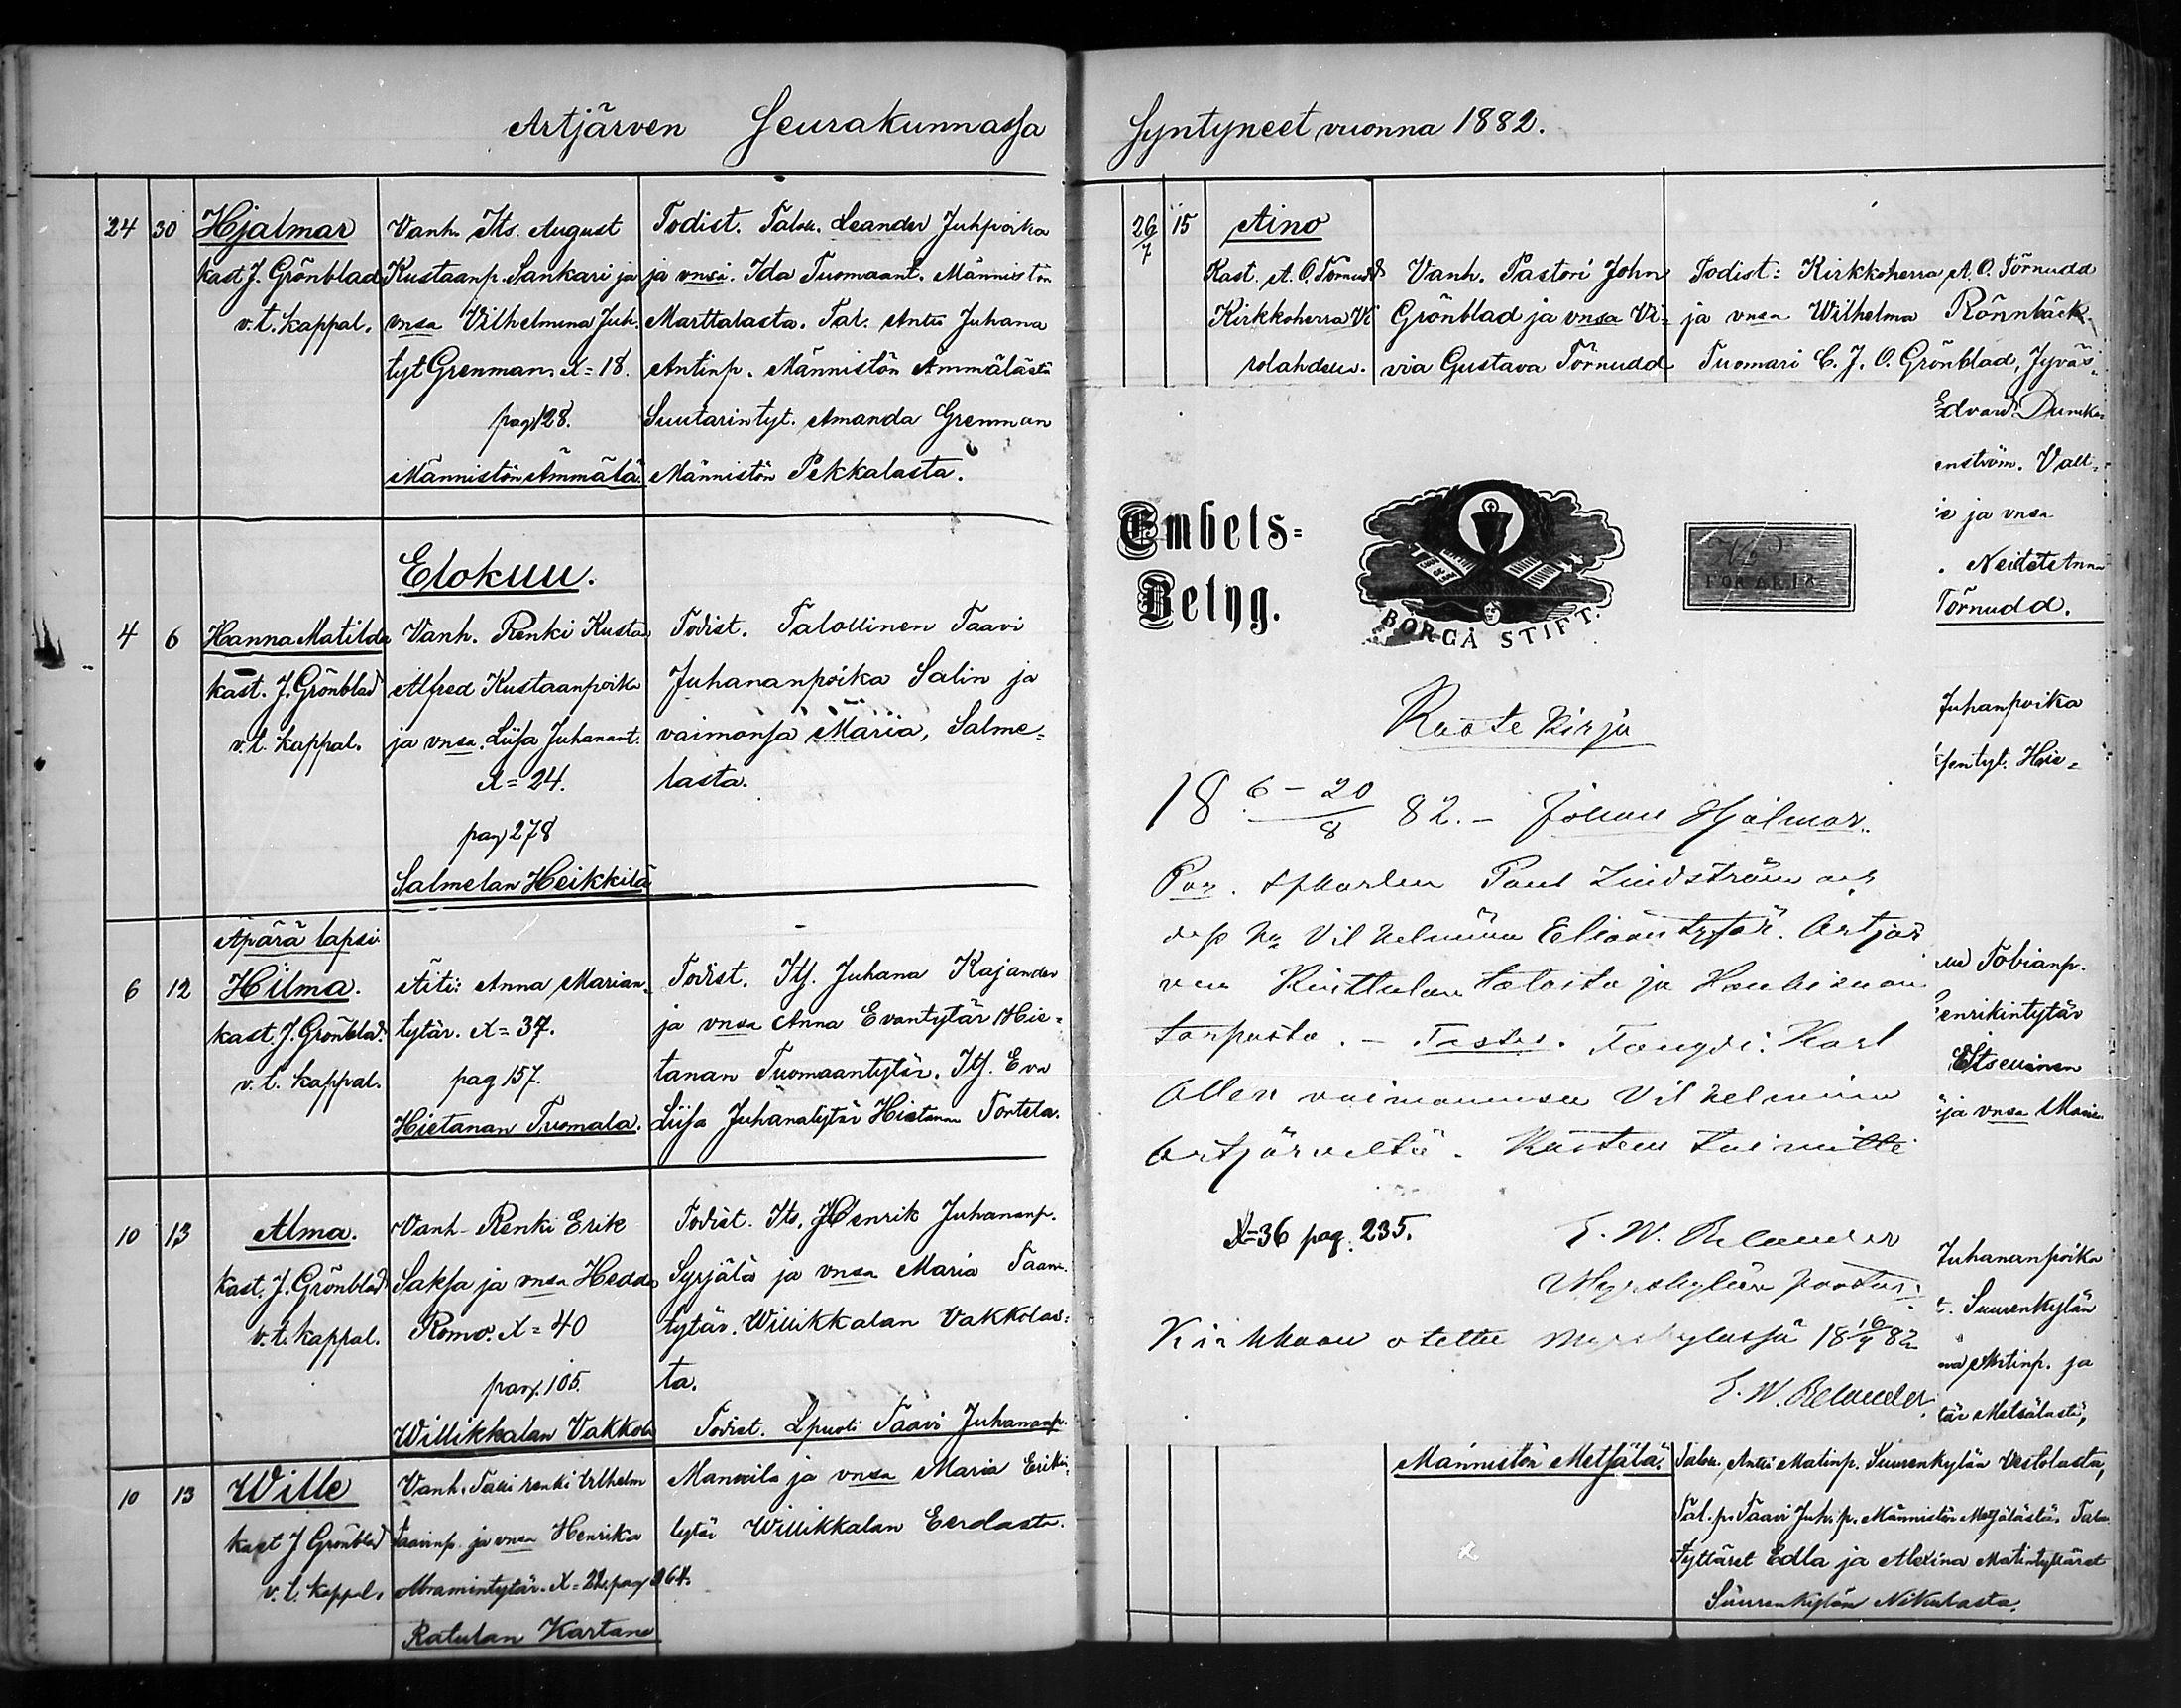 Artjärven Seurakunnassa
24 30 Hjalmar
kast J. Grönblad
v.t. kappal.
Vanh. Its. August
Kustaanp. Sankari ja
vnsa Vilhelmina Juh.
tyt Grenman. X=18.
pag 128.
Männistön Ammälä.
Todist. Talon. Leander Juhpoika
ja vnsa. Ida Tuomaant. Männistön
Marttalasta. Tal. Antti Juhana
Antinp. Männistön Ammälästä
Suutarintyt. Amanda Grenman
Männistön Pekkalasta.
Elokuu.
4 6 Hanna Matilda
kast. J. Grönblad
v.t. kappal.
Vanh. Renki Kusta
Alfred Kustaanpoika
ja vnsa. Liisa Juhanant.
X=24.
pag 278
Salmelan Heikkilä
Todist. Talollinen Taavi
Juhananpoika Salin ja
vaimonsa Maria, Salme=
lasta.
Äpärä lapsi
6 12 Hilma.
kast. J. Grönblad.
v.t. kappal.
Äiti: Anna Marian=
tytär. X=37.
pag 157.
Hietanan Tuomala.
Todist. Its. Juhana Kajander
ja vnsa Anna Evantytär Hie=
tanan Tuomaantytär. Its. Eva
Liisa Juhanatytär Hietanan Torttla.
10 13 Alma.
kast. J. Grönblad
v.t. kappal.
Vanh. Renki Erik
Saksa ja vnsa Hedda
Romo. X=40
pag. 105.
Willikkalan Vakkola
Todist. Its. Henrik Juhananp.
Syrjälä ja vnsa Maria Taavi
tytär. Willikkalan Vakkolas=
ta.
10 13 Wille
kast J Grönblad
v.t. kappal.
Vanh. Talli renki Vilhelm
Taavinp. ja vnsa Henrika
Abramintytär. X=22. pag 264.
Ratulan Kartano
Todist. Lpuoti Taavi Juhananp.
Mannila ja vnsa Maria Erikin
tytär Willikkalan Eerolasta.
Syntyneet vuonna 1882.
26/7 15 Aino
Kast. A. O. Törnudd
Kirkkoherra Vi
rolahdessa.
Vanh. Pastori John
Grönblad ja vnsa Vi=
via Gustava Törnudd
Todist: Kirkkoherra A. O. Törnudd
ja vnsa Wilhelma Rönnbäck.
Tuomari C. J. O. Grönblad, Jyväs=
Edvard Duncker
enström. Valt=
ja vnsa
Neidet Anna
Törnudd.
Embets=
Betyg.
BORGÅ STIFT.
Kaste kirja
18 6-20/8 82. - Johan Hjalmar.
Par. Paul Lindström och
dess hu Vilhelmina Eliaantytär. Artjär
ven Kinttulan talosta ja
torpasta. - Testes. Karl
vaimonensa Vilhelmina
Artjärveltä. Kasteen toimitti
X=36 pag. 235.
E. W. Relander
Myrskylän pastor.
Kirkkoon otettu Myrskylässä 18 82
E. W. Relander.
Juhanpoika
Tobianp.
enrikintytär
Itsellinen
ja vnsa Maria
Juhananpoika
Suurenkylän
Antinp. ja
tär Metsälästä,
Männistön Metsälä.
Talon. Antti Matinp. Suurenkylän Vestolasta,
Tal. p. Taavi Juh. p. Männistön Metsälästä. Talon
tyttäret Edla ja Alexina Matintyttäret
Suurenkylän Nikulasta.